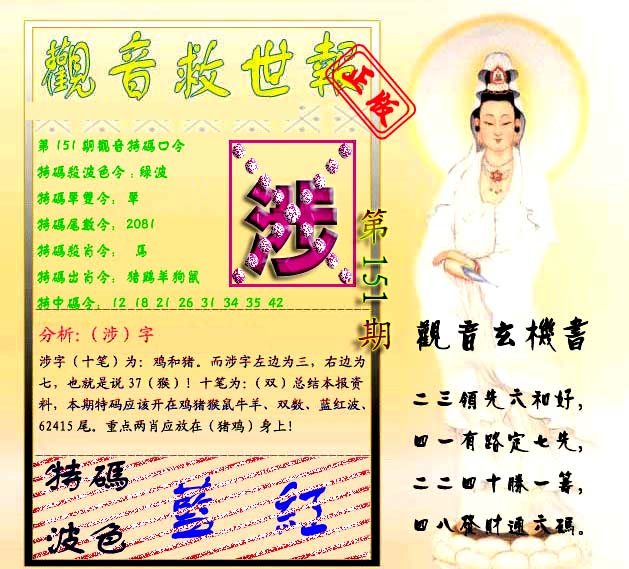 觀音救世報
正版
第151期觀音特碼口令
特碼殺波色令：綠波
特碼單雙令： 單
特碼尾數令： 2081
特碼殺肖令： 馬
特碼出肖令： 豬鷄羊狗鼠
特中碼令： 12 18 21 26 31 34 35 42
涉
第151期
分析:（涉）字
涉字（十笔）为：鸡和猪。而涉字左边为三，右边为
七，也就是说 37（猴）！十笔为：（双）总结本报资
料，本期特码应该开在鸡猪猴鼠牛羊、双数、蓝红波、
62415 尾。重点两肖应放在（猪鸡）身上！
特碼
波色
藍 紅
觀音玄機書
二三領先六和好，
四一有路定七先，
二二四十勝一籌，
四八發財通六碼。